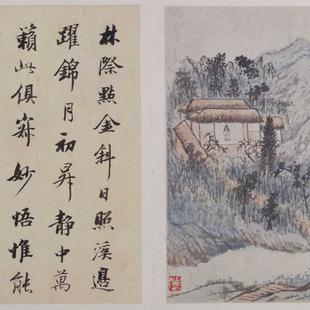 林際點金斜日照溪邊
躍錦月初昇靜中萬
籟此俱寂妙悟惟能